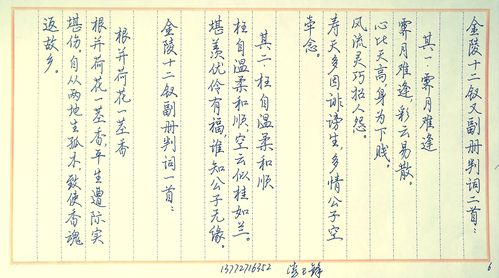 金陵十二钗又副册判词二首：
其一·霁月难逢
霁月难逢，彩云易散。
心比天高，身为下贱。
风流灵巧招人怨。
寿夭多因诽谤生，多情公子空
牵念。
其二·枉自温柔和顺
枉自温柔和顺，空云似桂如兰。
堪羡优伶有福，谁知公子无缘。
金陵十二钗副册判词一首：
根并荷花一茎香
根并荷花一茎香，平生遭际实
堪伤。自从两地生孤木，致使香魂
返故乡。
13772716352
6